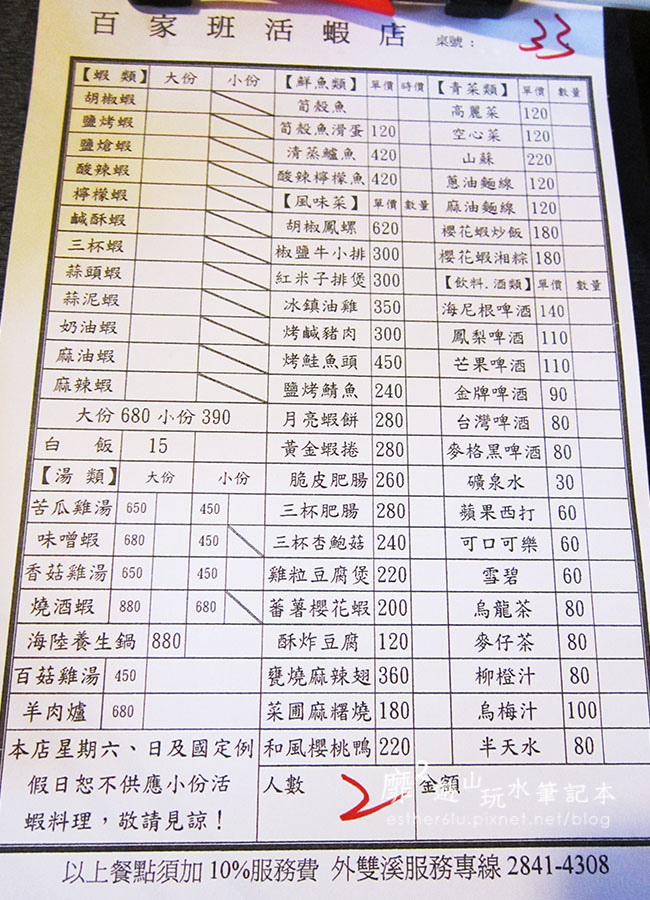 百家班活蝦店 桌號： 33
【蝦 類】 大份 小份
胡椒蝦
鹽烤蝦
鹽焗蝦
酸辣蝦
檸檬蝦
鹹酥蝦
三杯蝦
蒜頭蝦
蒜泥蝦
奶油蝦
麻油蝦
麻辣蝦
大份 680 小份 390
白 飯 15
【湯 類】 大份 小份
苦瓜雞湯 650 450
味噌蝦 680 450
香菇雞湯 650 450
燒酒蝦 880 680
海陸養生鍋 880
百菇雞湯 450
羊肉爐 680
本店星期六、日及國定例
假日恕不供應小份活
蝦料理，敬請見諒！
【鮮魚類】 單價 時價
筍殼魚
筍殼魚滑蛋 120
清蒸鱸魚 420
酸辣檸檬魚 420
【風味菜】 單價 數量
胡椒鳳螺 620
椒鹽牛小排 300
紅米子排煲 300
冰鎮油雞 350
烤鹹豬肉 300
烤鮭魚頭 450
鹽烤鯖魚 240
月亮蝦餅 280
黃金蝦捲 280
脆皮肥腸 260
三杯肥腸 280
三杯杏鮑菇 240
雞粒豆腐煲 220
蕃薯櫻花蝦 200
酥炸豆腐 120
甕燒麻辣翅 360
菜圃麻糬燒 180
和風櫻桃鴨 220
人數 2
【青菜類】 單價 數量
高麗菜 120
空心菜 120
山蘇 220
蔥油麵線 120
麻油麵線 120
櫻花蝦炒飯 180
櫻花蝦湘粽 180
【飲料.酒類】 單價 數量
海尼根啤酒 140
鳳梨啤酒 110
芒果啤酒 110
金牌啤酒 90
台灣啤酒 80
麥格黑啤酒 80
礦泉水 30
蘋果西打 60
可口可樂 60
雪碧 60
烏龍茶 80
麥仔茶 80
柳橙汁 80
烏梅汁 100
半天水 80
金額
遊山玩水筆記本
esther6lu.pixnet.net/blog
以上餐點須加 10%服務費 外雙溪服務專線 2841-4308